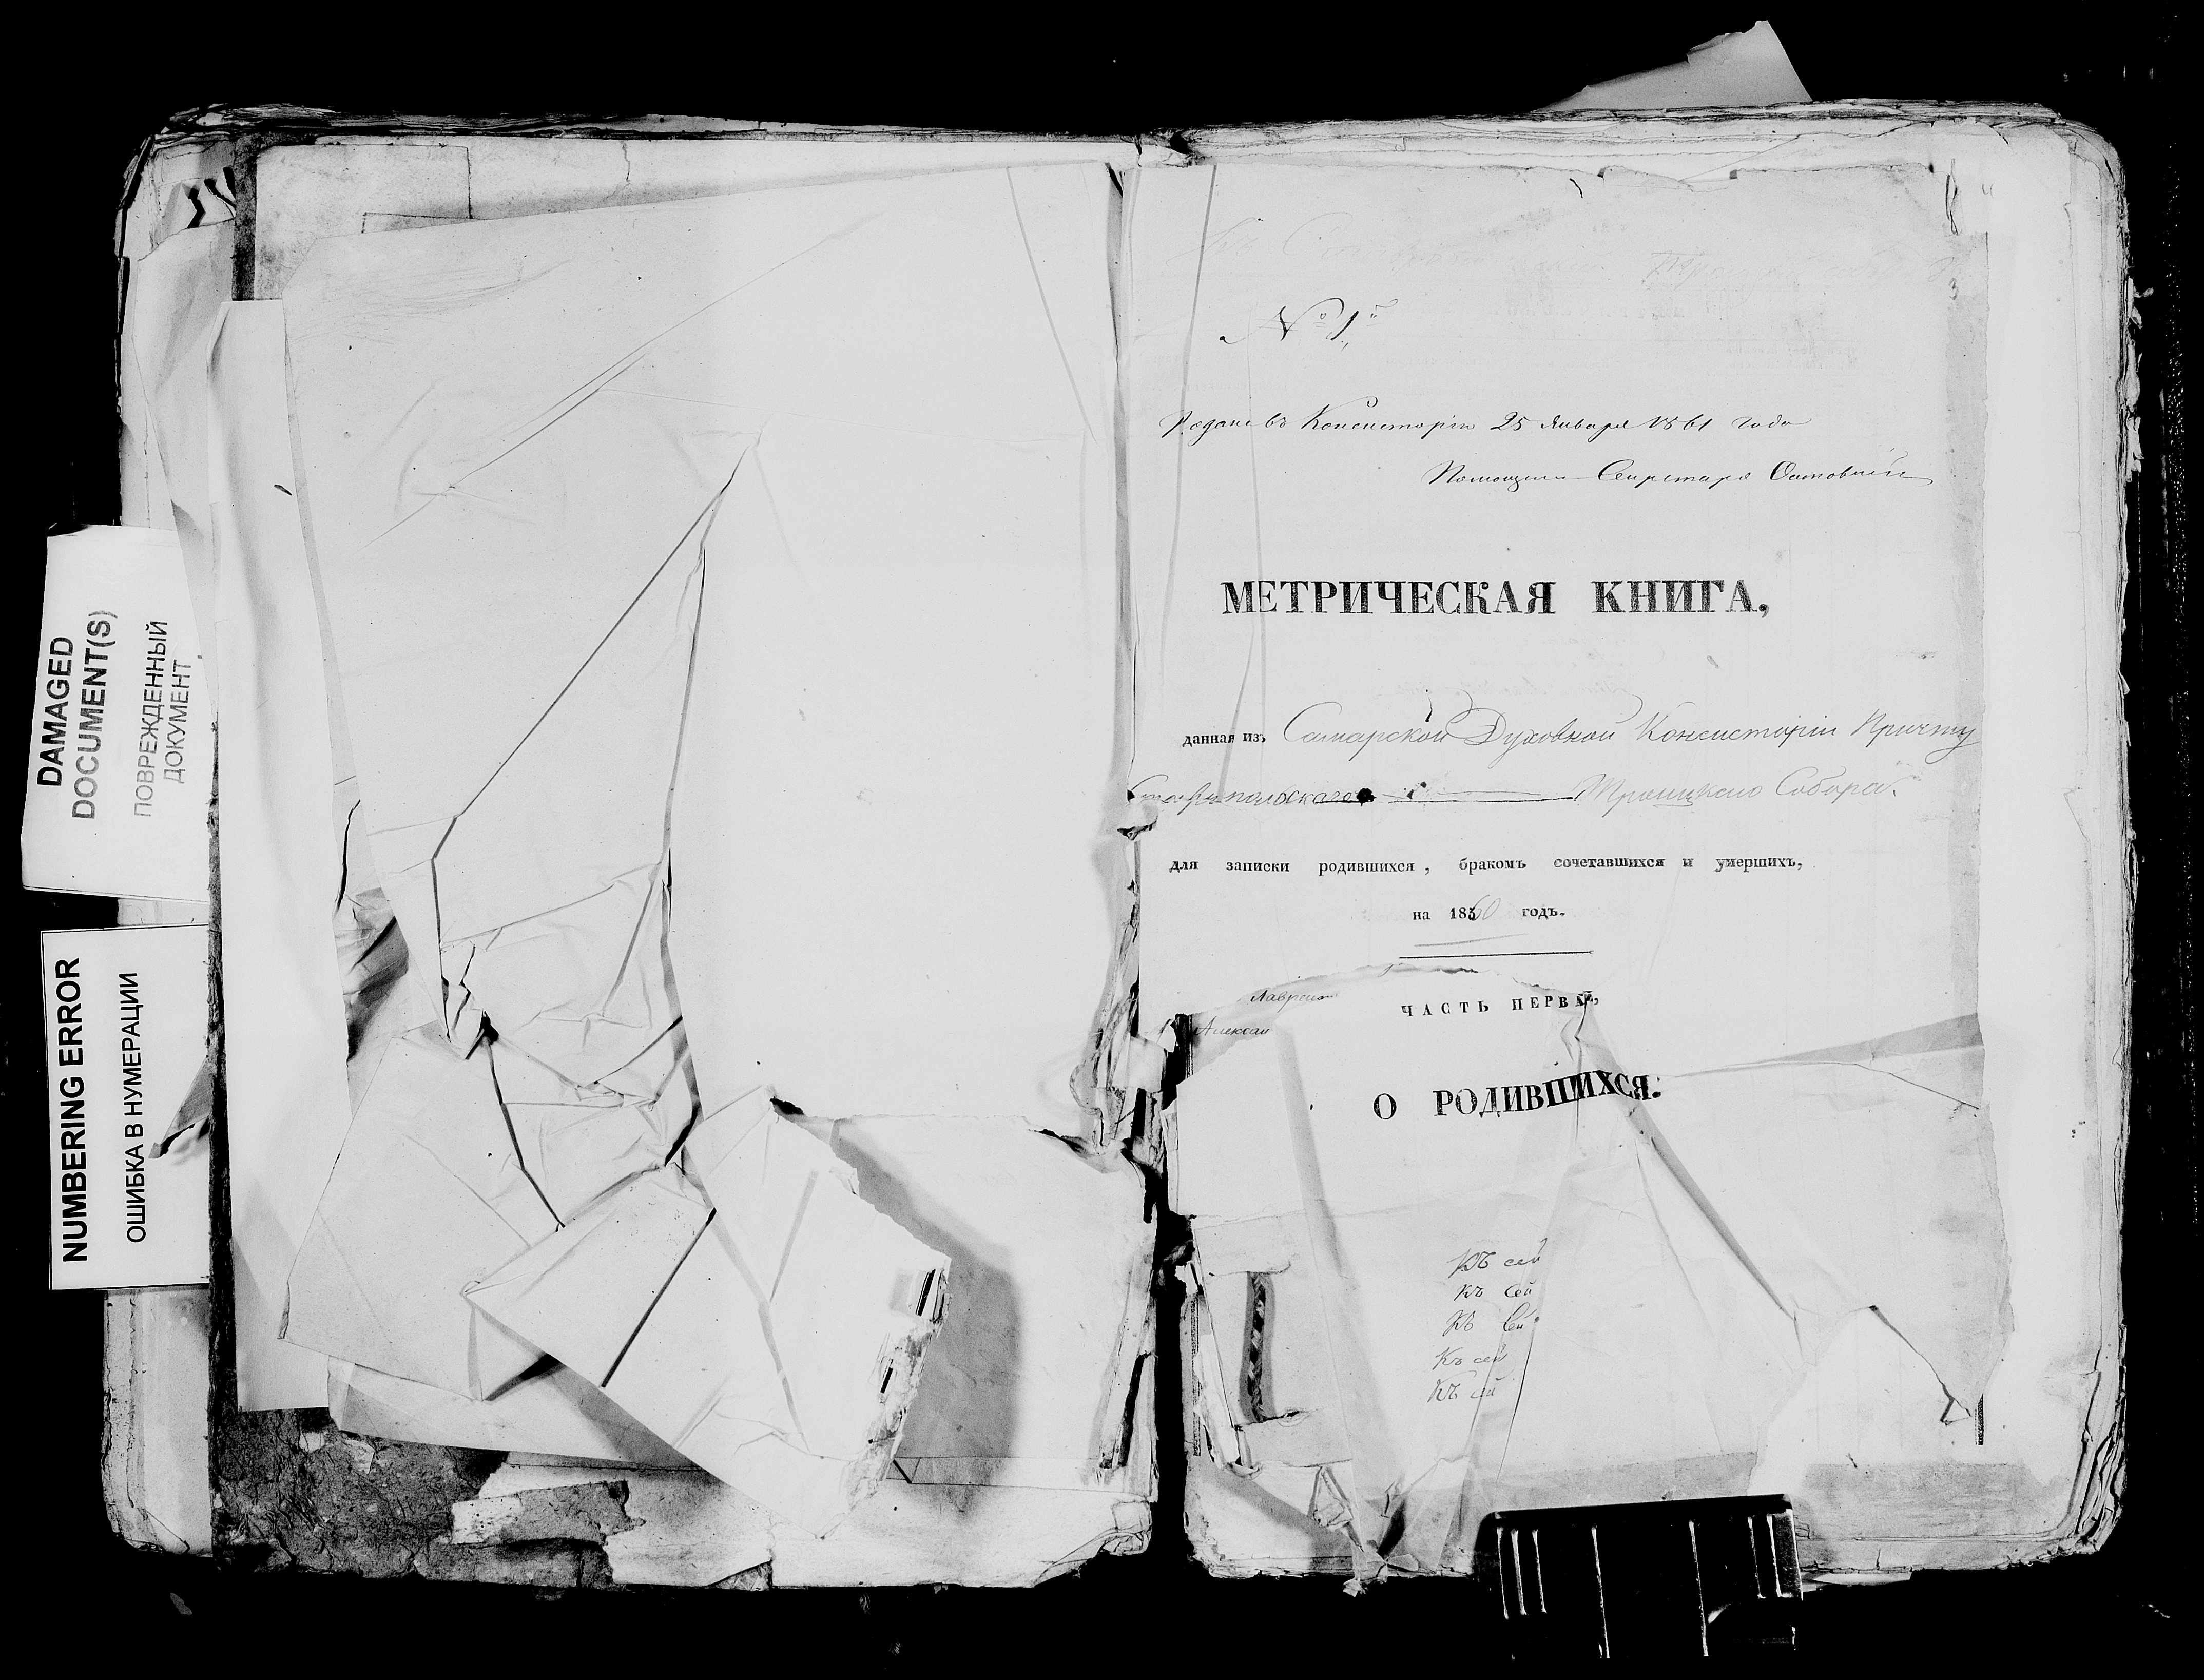 DAMAGED
DOCUMENT(S)
ПОВРЕЖДЕННЫЙ
ДОКУМЕНТ
NUMBERING ERROR
ОШИБКА В НУМЕРАЦИИ
3
№ 1й
Подана въ Консисторію 25 Января 1861 года
Помощник Секретаря
МЕТРИЧЕСКАЯ КНИГА,
данная изъ Самарской Духовной Консисторіи Причту
Ставропольскаго Троицкаго Собора.
для записки родившихся, бракомъ сочетавшихся и умершихъ,
на 1860 годъ.
Лаврен
ЧАСТЬ ПЕРВАЯ,
Алексан
О РОДИВШИХСЯ.
Къ сей
Къ сей
Къ сей
Къ сей
Къ сей